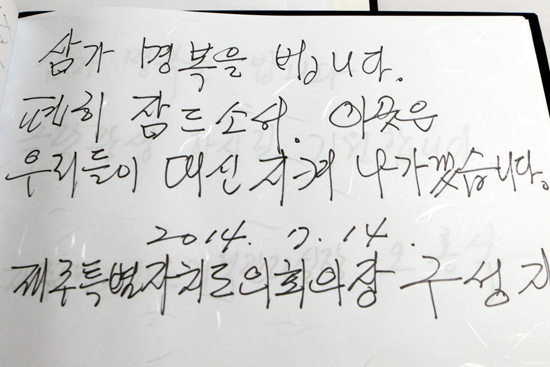 삼가 명복을 빕니다.
편히 잠드소서. 이곳은
우리들이 대신 지켜 나가겠습니다.
2014. 7. 14.
제주특별자치도의회의장 구성지